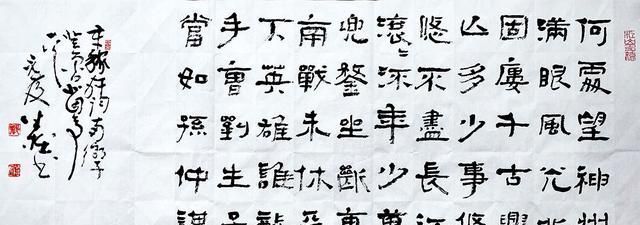 何處望神州
滿眼風光北
固廔千古興
亾多少事悠
悠不盡長江
滾〻流年少萬
兜鍪坐斷東
南戰未休天
下英雄誰敵
手曹劉生子
當如孫仲謀
辛稼軒詞南鄉子